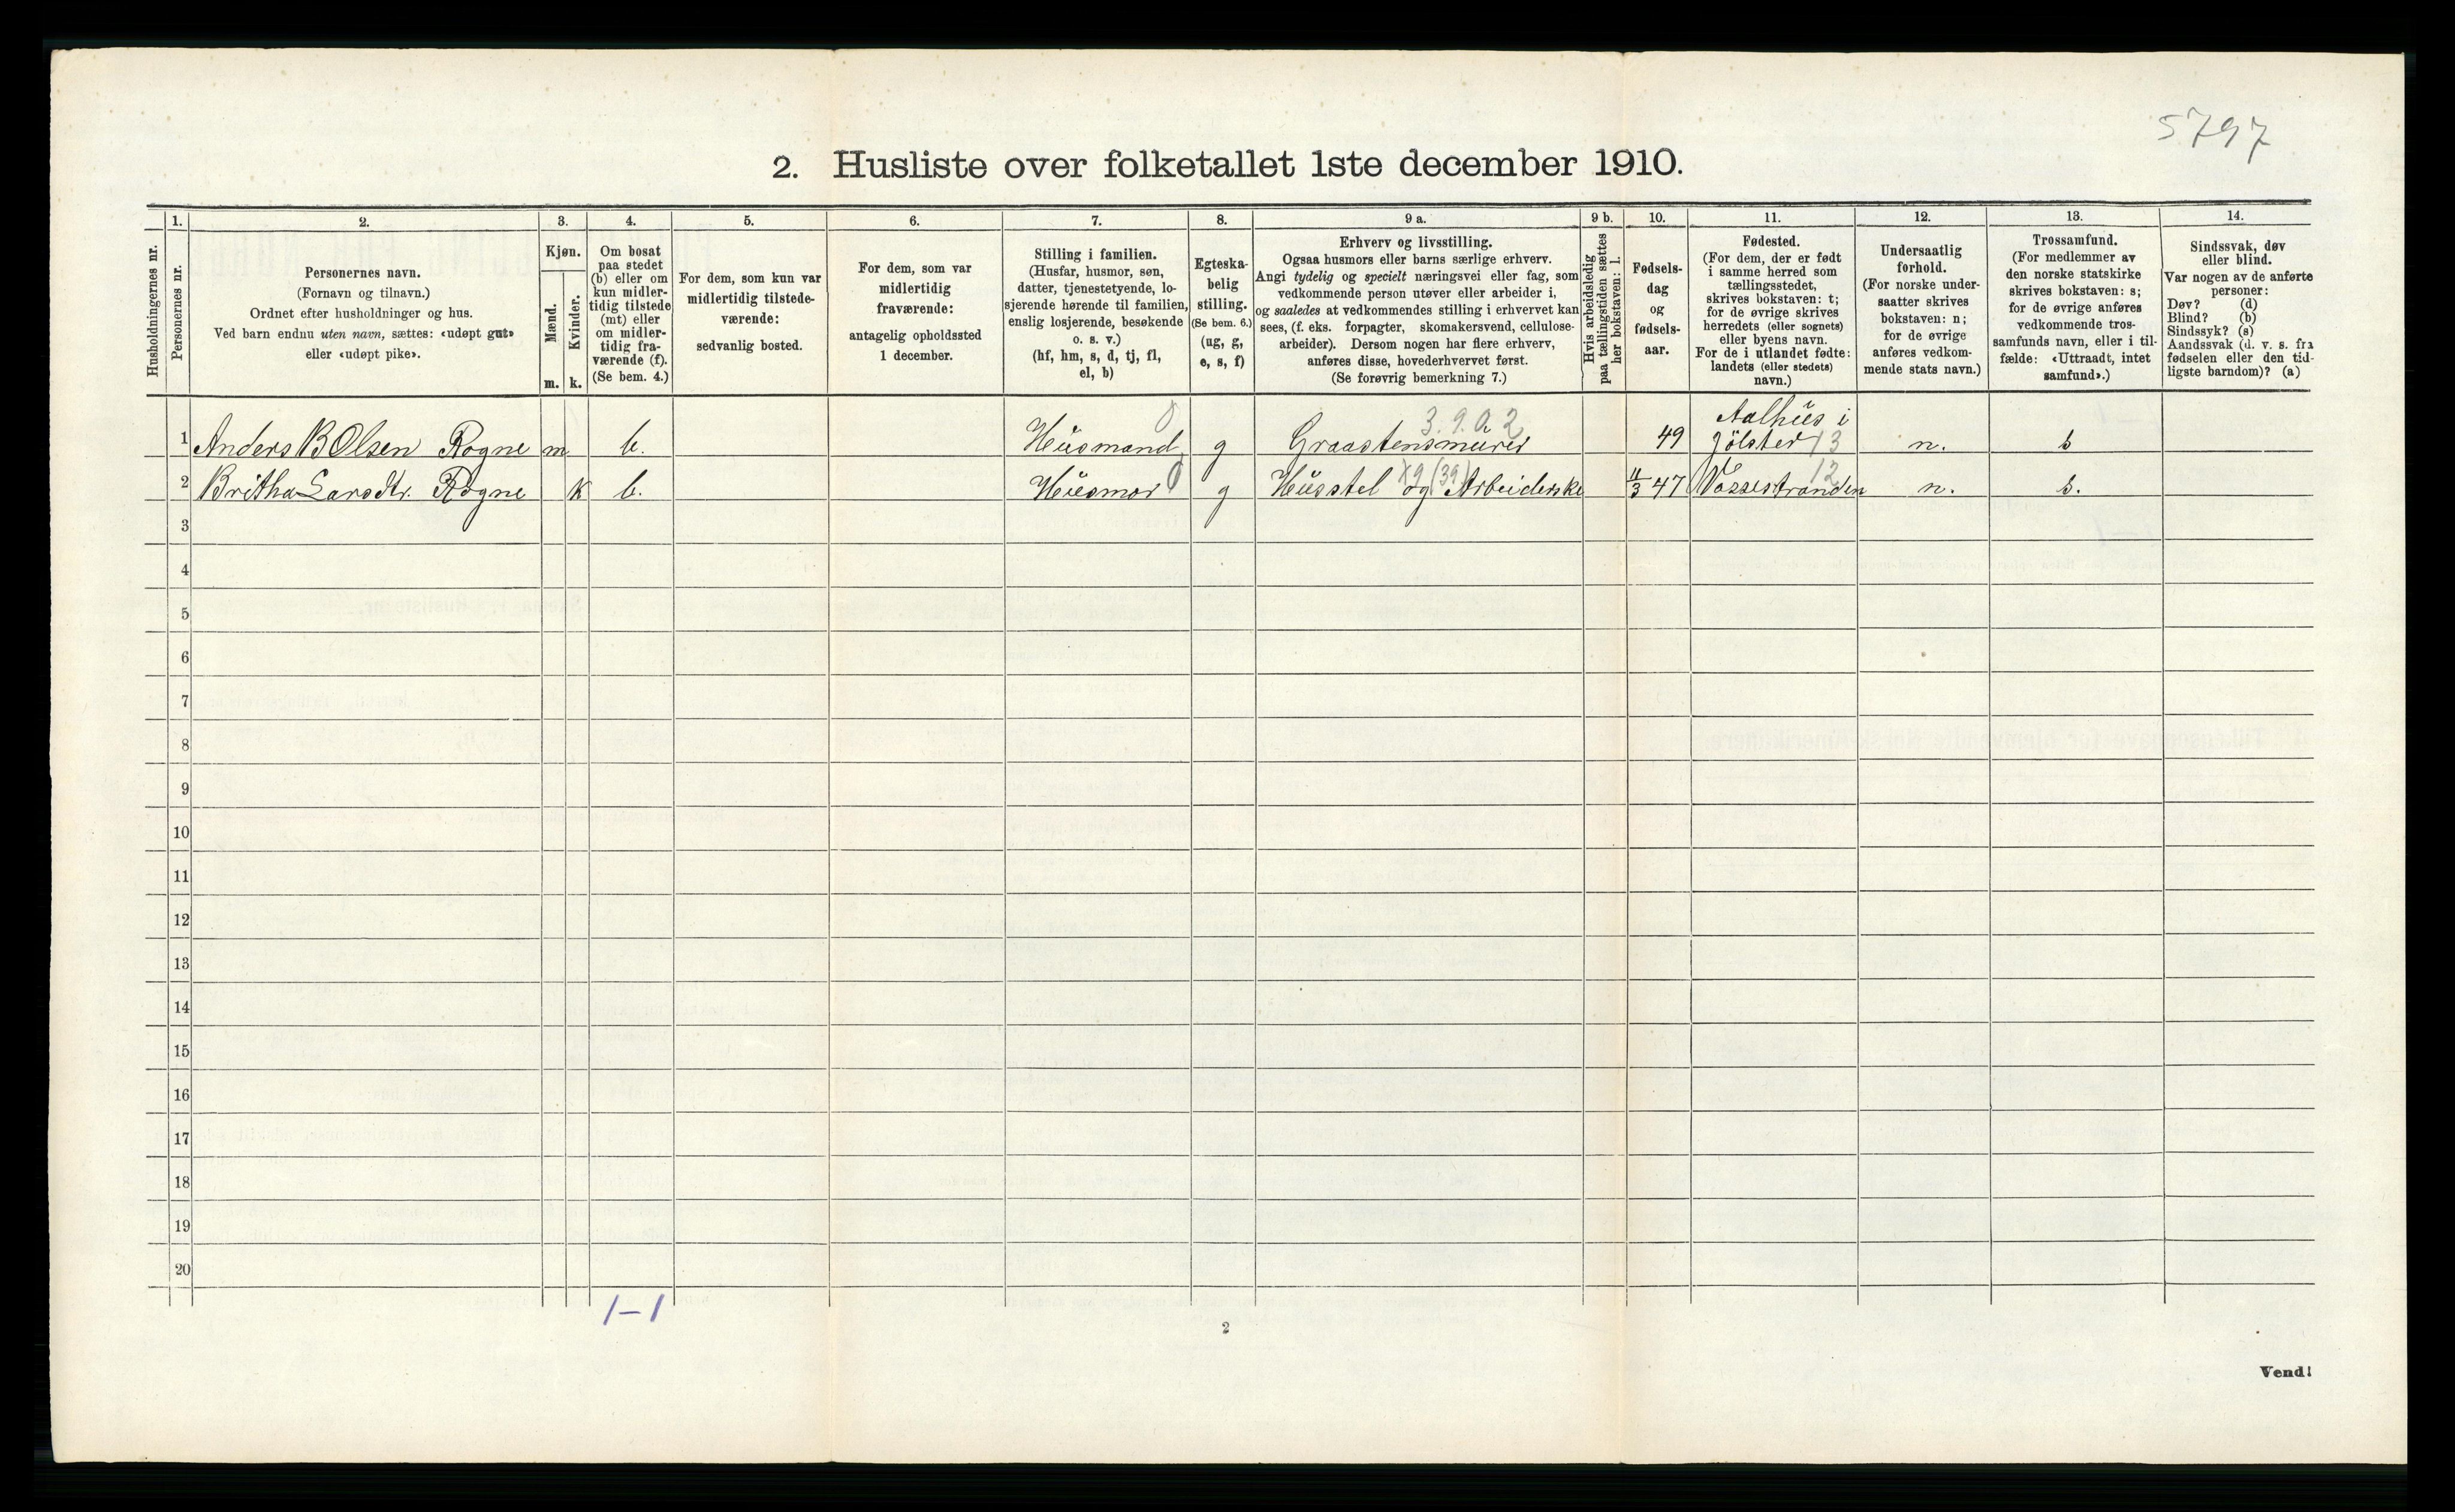 5797
2. Husliste over folketallet 1ste december 1910.
Husholdningernes nr.
1.
Personernes nr.
2.
Personernes navn.
(Fornavn og tilnavn.)
Ordnet efter husholdninger og hus.
Ved barn endnu uten navn, sættes: «udøpt gut»
eller «udøpt pike».
3.
Kjøn.
Mænd.
m.
Kvinder.
k.
4.
Om bosat
paa stedet
(b) eller om
kun midler-
tidig tilstede
(mt) eller
om midler-
tidig fra-
værende (f).
(Se bem. 4.)
5.
For dem, som kun var
midlertidig tilstede-
værende:
sedvanlig bosted.
6.
For dem, som var
midlertidig
fraværende:
antagelig opholdssted
1 december.
7.
Stilling i familien.
(Husfar, husmor, søn,
datter, tjenestetyende, lo-
sjerende hørende til familien,
enslig losjerende, besøkende
o. s. v.)
(hf, hm, s, d, tj, fl,
el, b)
8.
Egteska-
belig
stilling.
(Se bem. 6.)
(ug, g,
e, s, f)
9 a.
Erhverv og livsstilling.
Ogsaa husmors eller barns særlige erhverv.
Angi tydelig og specielt næringsvei eller fag, som
vedkommende person utøver eller arbeider i,
og saaledes at vedkommendes stilling i erhvervet kan
sees, (f. eks. forpagter, skomakersvend, cellulose-
arbeider). Dersom nogen har flere erhverv,
anføres disse, hovederhvervet først.
(Se forøvrig bemerkning 7.)
9 b.
Hvis arbeidsledig
paa tællingstiden sættes
her bokstaven: l.
10.
Fødsels-
dag
og
fødsels-
aar.
11.
Fødested.
(For dem, der er født
i samme herred som
tællingsstedet,
skrives bokstaven: t;
for de øvrige skrives
herredets (eller sognets)
eller byens navn.
For de i utlandet fødte:
landets (eller stedets)
navn.)
12.
Undersaatlig
forhold.
(For norske under-
saatter skrives
bokstaven: n;
for de øvrige
anføres vedkom-
mende stats navn.)
13.
Trossamfund.
(For medlemmer av
den norske statskirke
skrives bokstaven: s;
for de øvrige anføres
vedkommende tros-
samfunds navn, eller i til-
fælde: «Uttraadt, intet
samfund».)
14.
Sindssvak, døv
eller blind.
Var nogen av de anførte
personer:
Døv? (d)
Blind? (b)
Sindssyk? (s)
Aandssvak (d. v. s. fra
fødselen eller den tid-
ligste barndom)? (a)
1 Anders B Olsen Rogne m b. Husmand 0 g 3.9.a 2 Graastensmurer 49 Aalhus i
Jölster 13 n. s
2 Britha Larsdtr. Rogne K b. Husmor 0 g Husstel og Arbeiderske X9 (39) 11/3 47 Vossestranden 12 n. s.
3
4
5
6
7
8
9
10
11
12
13
14
15
16
17
18
19
20
1–1
2
Vend!